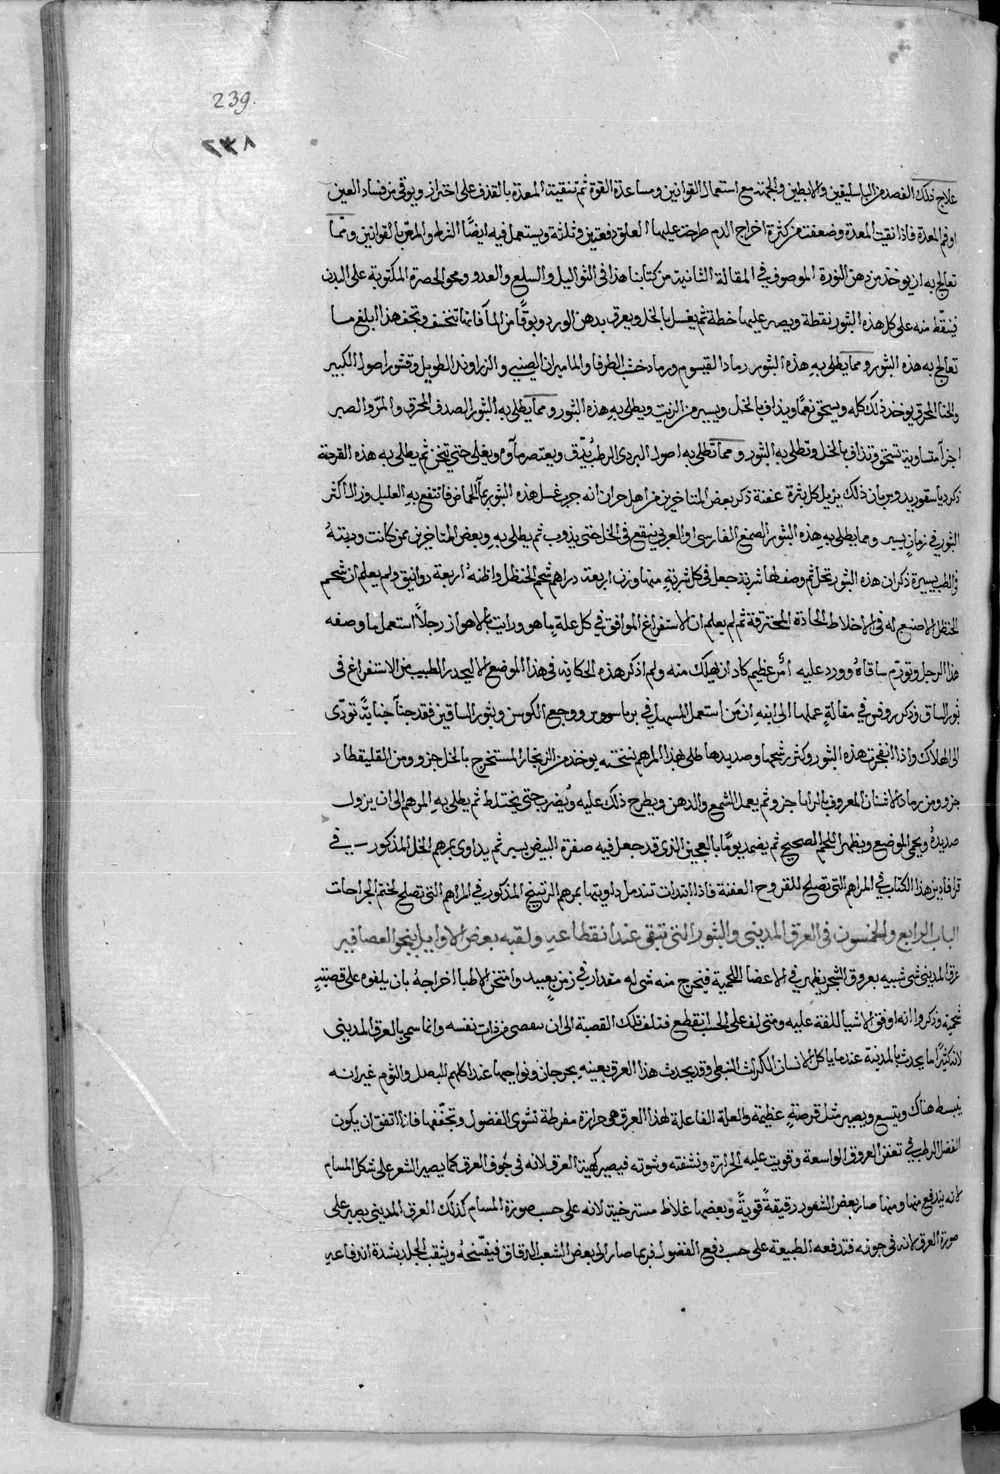 239.
٢٣٨
علاج ذلك الفصد من الباسليقين والابطين والحجمة مع استعمال القوانين ومساعدة القوة ثم تنقية المعدة بالقذف على احتراز ويوقى من فساد العين
او فم المعدة فاذا نقيت المعدة وضعفت من كثرة اخراج الدم طرحت عليها العلق دفعتين وثلثة ويستعمل فيه ايضًا بالقوانين وممّا
تعالج به ان يوخذ من دهن النورة الموصوف في المقالة الثانية من كتابنا هذا في الثواليل والسلع والغدد المكتوبة على البدن
فينقّط منه على كل هذه البثور نقطة ويصبر عليها ثم يغسل بالخل ويعرق بدهن الورد ويوقّا من المآ فانها وتجف هذا ابلغ ما
تعالج به هذه البثور ومما يطلى به هذه البثور رماد القيسوم ورماد خشب الطرفا والماميران الصيني والزراوند الطويل وقشور اصول الكبر
والحنا المحرق يوخذ ذلك كله ويسحق نعمًا ويذاف بالخل ويسير من الزيت ويطلى به هذه البثور ومما يطلى به البثور الصدف المحرق والمرّ والصبر
اجزآ متساوية تسحق وتذاف بالخل وتطلى به البثور ومما تطلى به اصول البردى الرطب يُدّق ويعتصر مآوه ويغلى حتى يثخن ثم يطلى به هذه القرحة
ذكر دياسقوريدوس بان ذلك يزيل كل بثرة عفنة ذكر بعض المتاخرين من اهل حران انه جرب غسل هذه البثور بمآ الحماض فانتفع به العليل وزال اكثر
البثور في زمان يسير ومما يطلى به هذه البثور الصمغ الفارسى او العربى ينقع في الخل حتى يذوب ثم يطلى به وبعض المتاخرين ممن كانت دربتهُ
في الطب يسيرة ذكر ان هذه البثور تحل ثم وصف لها شربة جعل في كل شربةٍ منها وزن اربعة دراهم شحم الحنظل واظنهُ اربعة دوانيق ولم يعلم ان شحم
الحنظل لا صنع له في الاخلاط الحادة المحترقة ثم لم يعلم ان الاستفراغ الموافق في كل علة ما هو ورايت بالاهواز رجلًا استعمل ما وصفه
هذا الرجل وتورّم ساقاهُ وورد عليه امرٌ عظيم كاد ان يهلك منه ولم اذكر هذه الحكاية في هذا الموضع الا ليحذر الطبيب من الاستفراغ فى
بثور الساق وذكر روفس في مقالةٍ عملها الى ابنهِ ان من استعمل المسهل في ووجع الكوس وبثور الساقين فقد جنآ جنايةً تودّى
الى الهلاك واذا انفجرت هذه البثور وكثر رشحها وصديدها طلى بهذا المرهم نسخته يوخذ من الزنجار المستخرج بالخل جزو ومن القليقطاد
جزو ومن رماد الاشنان المعروف بالرابا جزو ثم يعمل الشمع والدهن ويطرح ذلك عليه ويُضرب حتى يختلط ثم يطلى به المرهم الى ان يزول
صديدهُ ويحمى الموضع ويظهر اللحم الصحيح ثم يضمد يومًا بالعجين الذى قد جعل فيه صفرة البيض يسير ثم يداوى بمرهم الخل المذكور في
قرافادين هذا الكتاب في المراهم التى تصلح للقروح العفنة فاذا ابتدات تندمل داويتها بمرهم الرتينج المذكور في المراهم التى تصلح لختم الجراحات
الباب الرابع والخمسون فى العرق المدينى والبثور التى تبقى عند انقطاعه ولقبه بعض الاوايل بنحو العصافير
عرق المدينى شى شبيه بعروق الشجر يظهر في الاعضا اللحمية فيخرج منه شى له مقدار في زمن بعيد وامتحن الاطبا اخراجهُ بان يلفوه على قصبةٍ
شحمية وذكروا انه اوفق الاشيا للفة عليه ومتى لف على الخشب انقطع فتلف تلك القصبة الى ان من ذات نفسه وانما سمى بالعرق المدينى
لانه كثيرًا ما يحدث بالمدينة عند ما ياكل الانسان الكراث النبطى وقد يحدث هذا العرق بعينه بجرجان ونواحيها عند اكلهم البصل والثوم غير انه
ينبسط هناك ويتسع ويصير مثل قرصةٍ عظيمة والعلة الفاعلة لهذا العرق هى حرارة مفرطة تشوى الفضول وتجفّفها فاذا اتفق ان يكون
الفضل الرطب في تعفن العروق الواسعة وقويت عليه الحرارة ونشفته وشوته فيصير كهيئة العرق لانه فى جُوف العرق كما يصير الشعر على شكل المسام
لانه يندفع منها ومنها صار بعض الشعور رقيقةً قويةً وبعضها غلاظ مسترخية لانه على حسب صورة المسام كذلك العرق المدينى يصير على
صورة العرق لانه فى جوفه فتدفعه الطبيعة على حسب دفع الفضول فربما صار الى بعض الشعب الدقاق فيفتحهُ ويثقب الجلد بشدة اندفاعه